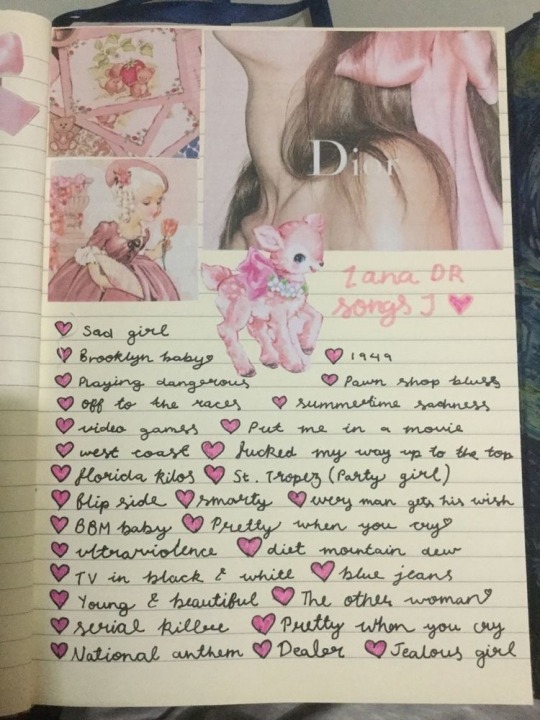 Dior
Lana DR
songs I ♥
Sad girl
Brooklyn baby ♥ 1949
Playing dangerous ♥ Pawn shop blues
off to the races ♥ summertime sadness
video games ♥ Put me in a movie
west coast ♥ fucked my way up to the top
florida kilos ♥ St. Tropez (Party girl)
flip side ♥ smarty ♥ every man gets his wish
BBM baby ♥ Pretty when you cry
ultraviolence ♥ diet mountain dew
TV in black & white ♥ blue jeans
Young & beautiful ♥ The other woman
serial killer ♥ Pretty when you cry
National anthem ♥ Dealer ♥ Jealous girl